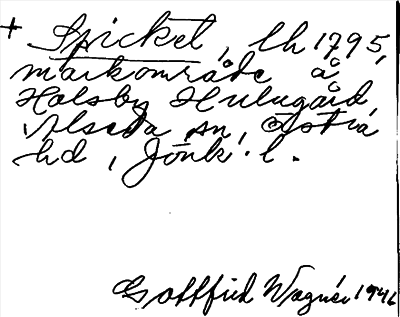 + Spicket, lh 1795,
markområde å
Holsby Hulugård,
Alseda sn, Östra
hd, Jönk. l.
Gottfrid Wagnér 1946